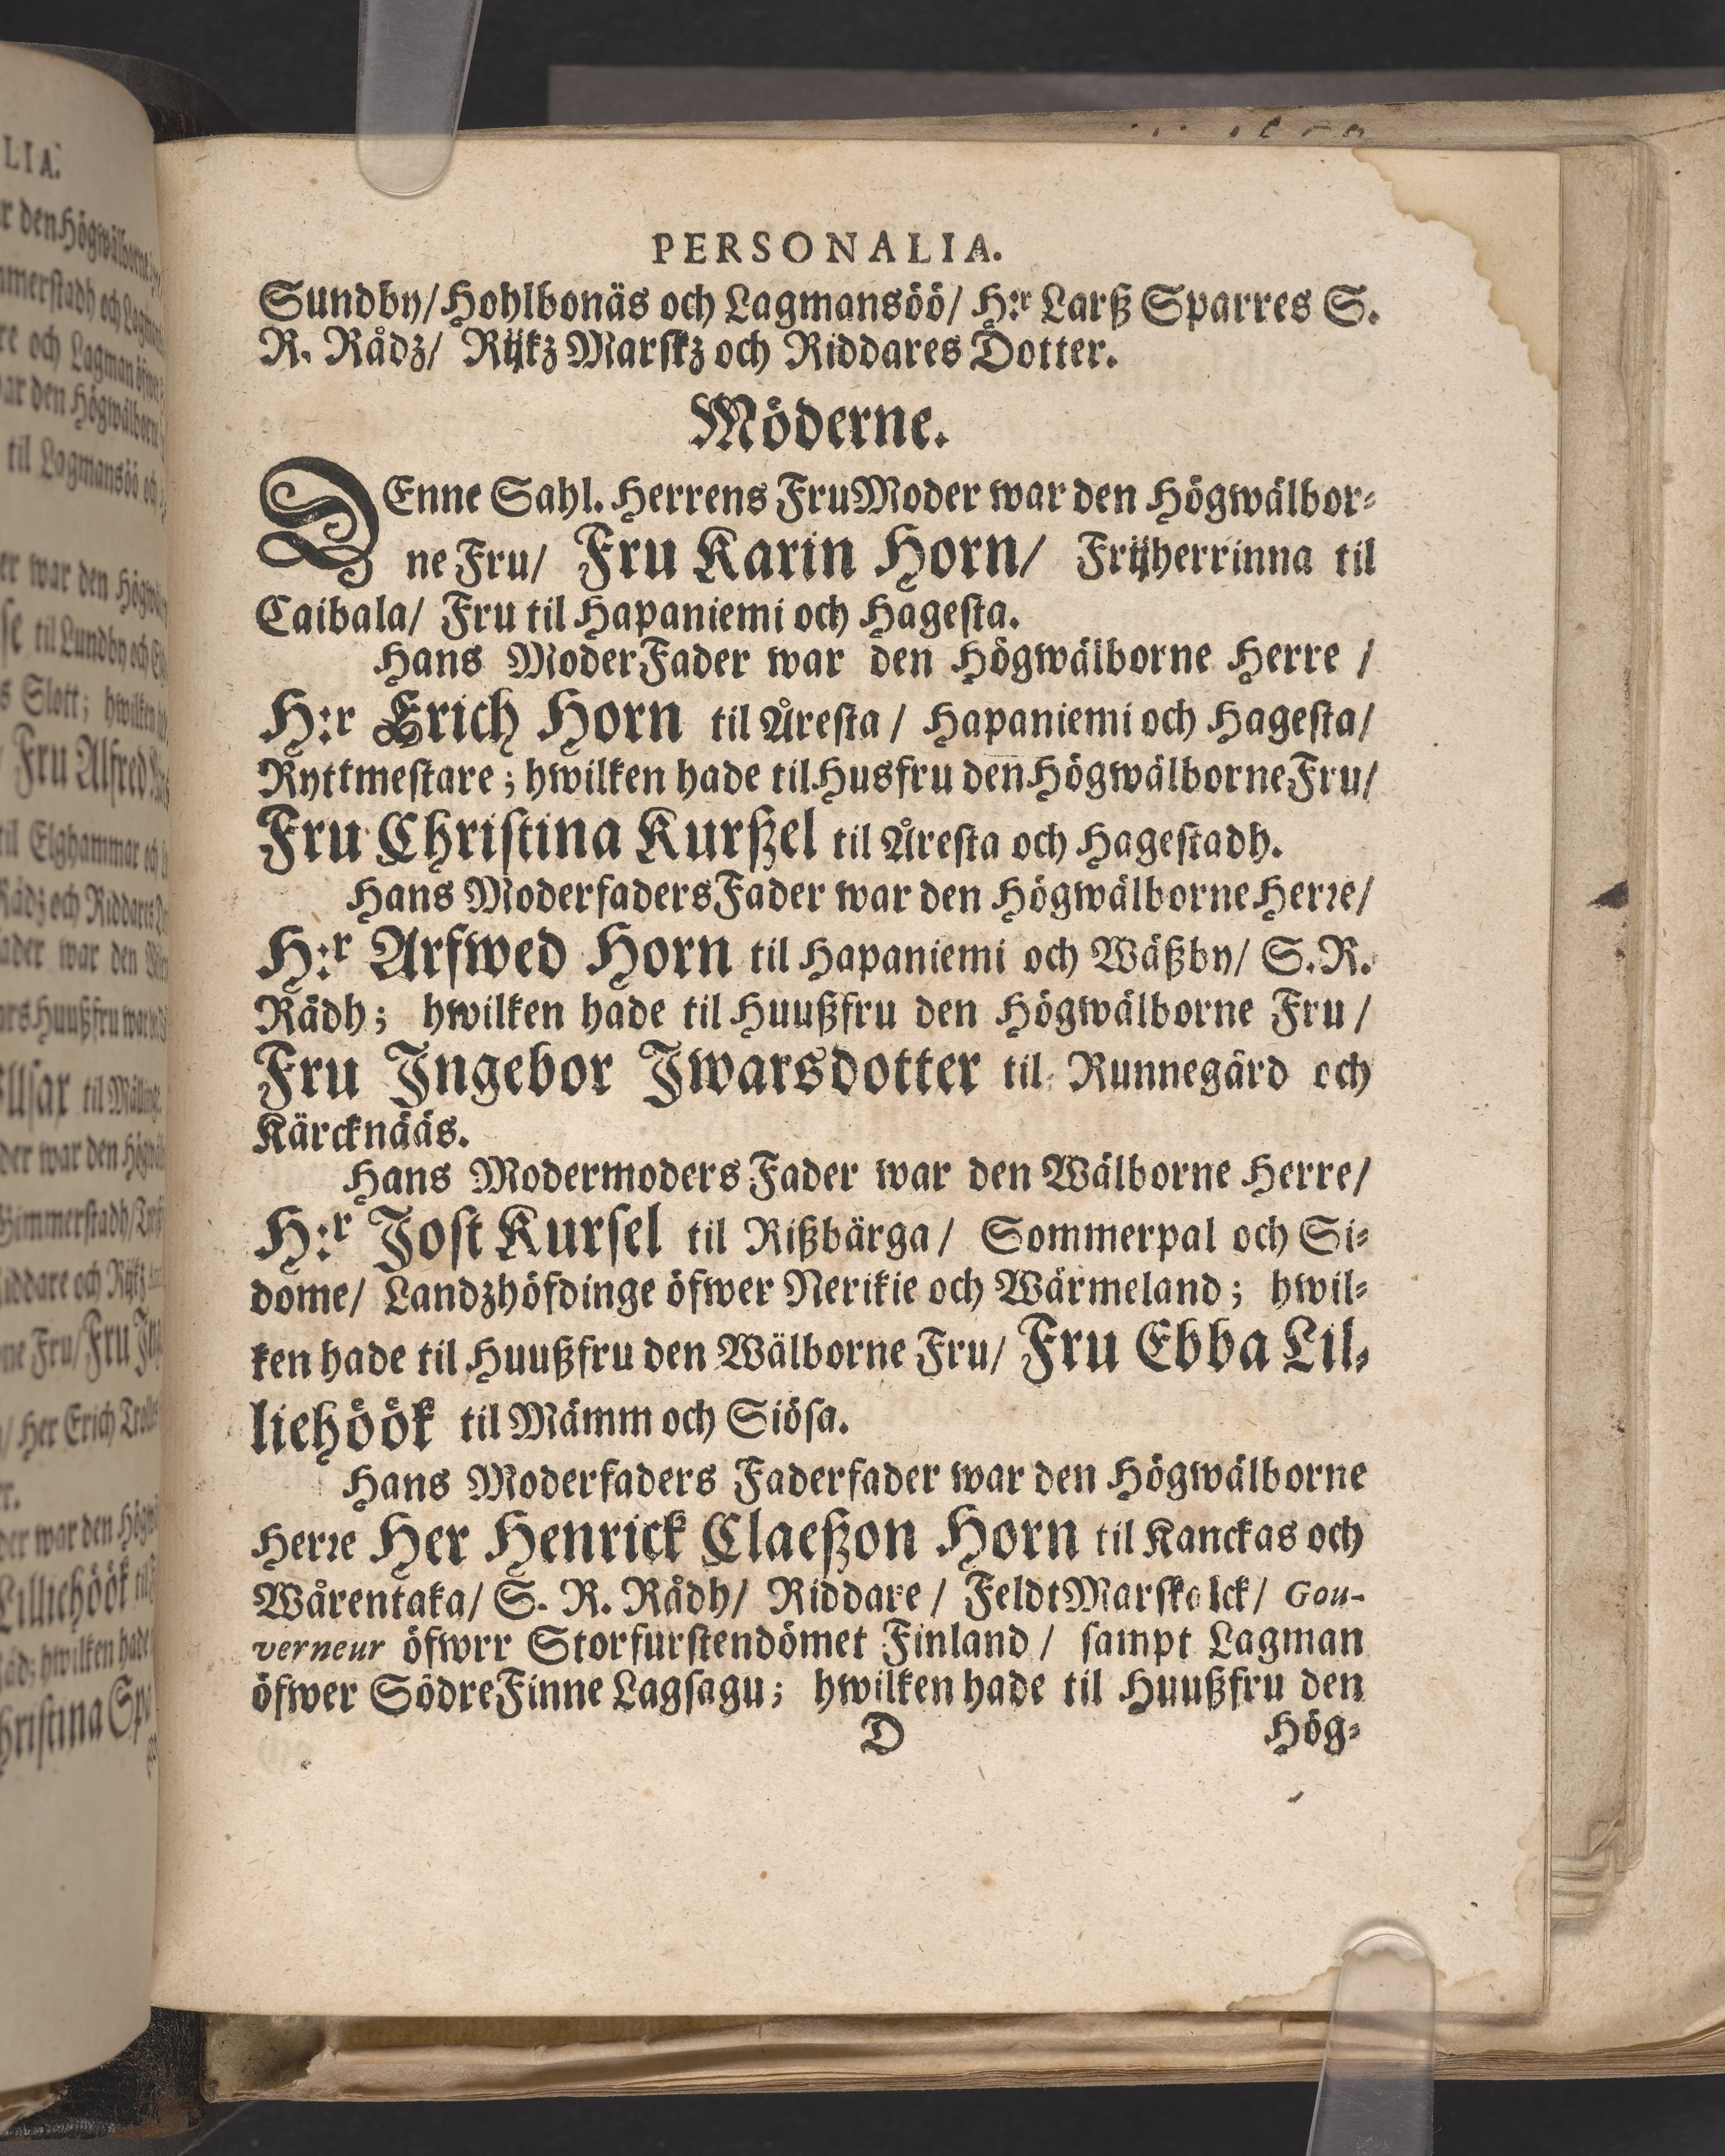 PERSONALIA.
Sundby/ Hohlbonäs och Lagmansöö/ H:r Larß Sparres S.
R. Rådz/ Rijkz Marskz och Riddares Dotter.
Möderne.
DEnne Sahl. Herrens FruModer war den Högwälbor-
ne Fru/ Fru Karin Horn/ Frijherrinna til
Caibala/ Fru til Hapaniemi och Hagesta.
Hans ModerFader war den Högwälborne Herre /
H:r Erich Horn til Åresta / Hapaniemi och Hagesta/
Ryttmestare; hwilken hade til Husfru den Högwälborne Fru/
Fru Christina Kurßel til Åresta och Hagestadh.
Hans ModerfadersFader war den Högwälborne Herre/
H:r Arfwed Horn til Hapaniemi och Wäßby/ S.R.
Rådh; hwilken hade til Huußfru den Högwälborne Fru /
Fru Ingebor Iwarsdotter til Runnegärd och
Kärcknääs.
Hans Modermoders Fader war den Wälborne Herre/
H:r Jost Kursel til Rißbärga / Sommerpal och Si-
dome/ Landzhöfdinge öfwer Nerikie och Wärmeland; hwil-
ken hade til Huußfru den Wälborne Fru/ Fru Ebba Lil-
liehöök til Mämm och Siösa.
Hans Moderfaders Faderfader war den Högwälborne
Herre Her Henrick Claeßon Horn til Kanckas och
Wårentaka/ S. R. Rådh/ Riddare / FeldtMarskalck/ Gou-
verneur öfwrr Storfurstendömet Finland / sampt Lagman
öfwer SödreFinne Lagsagu; hwilken hade til Huußfru den
D Hög-